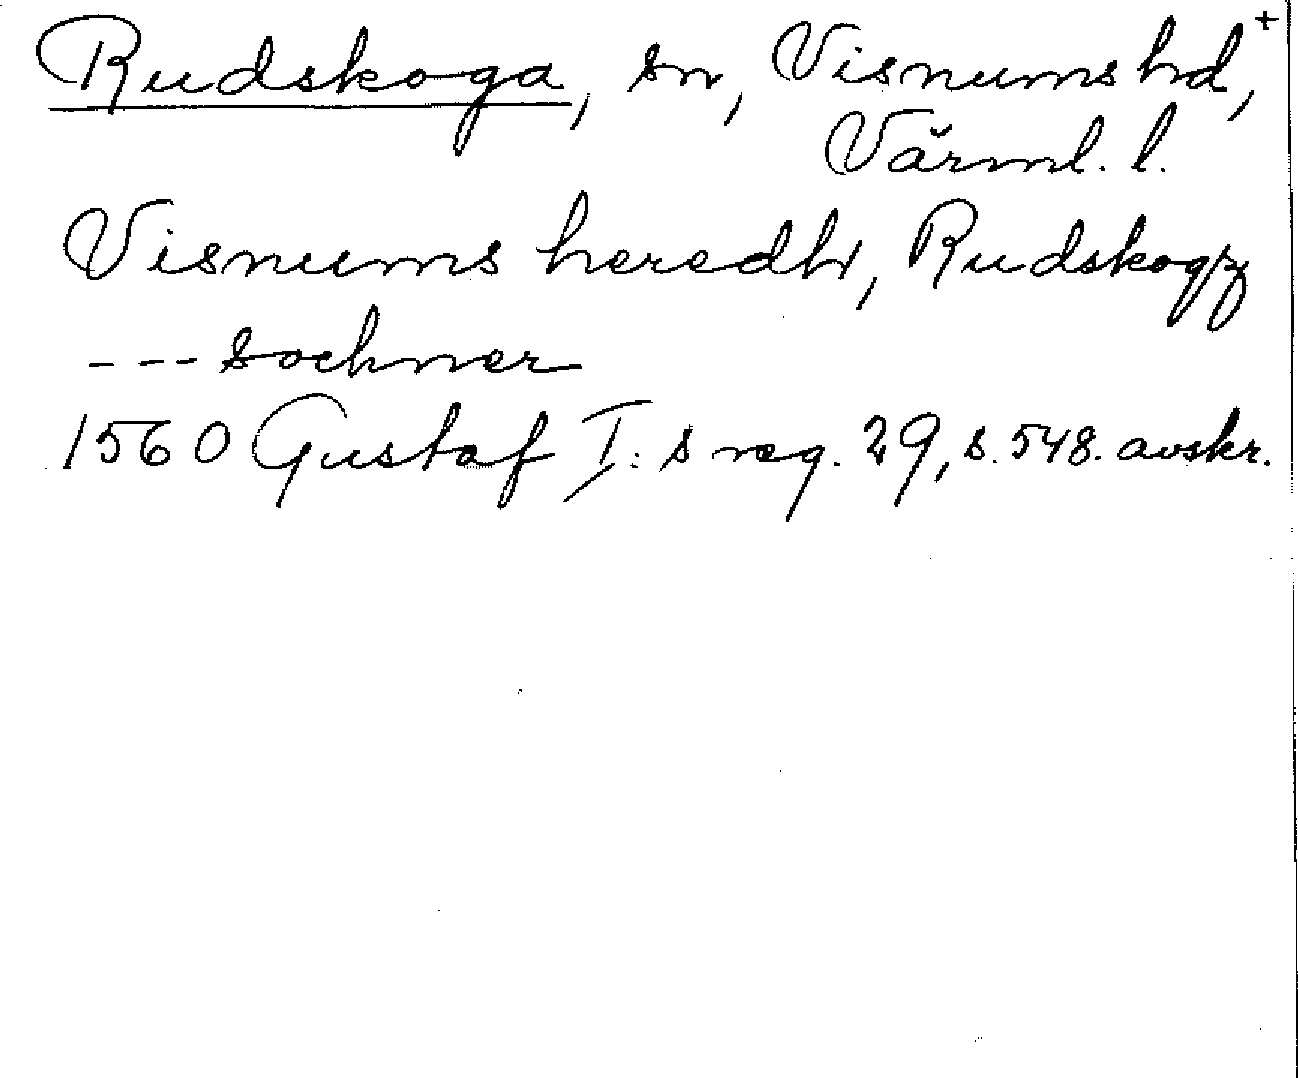 Rudskoga, sn, Visnums hd,+
Värml. l.
Visnums heredh, Rudskogz
--- sochner
1560 Gustaf I: s reg. 29, s. 548. avskr.